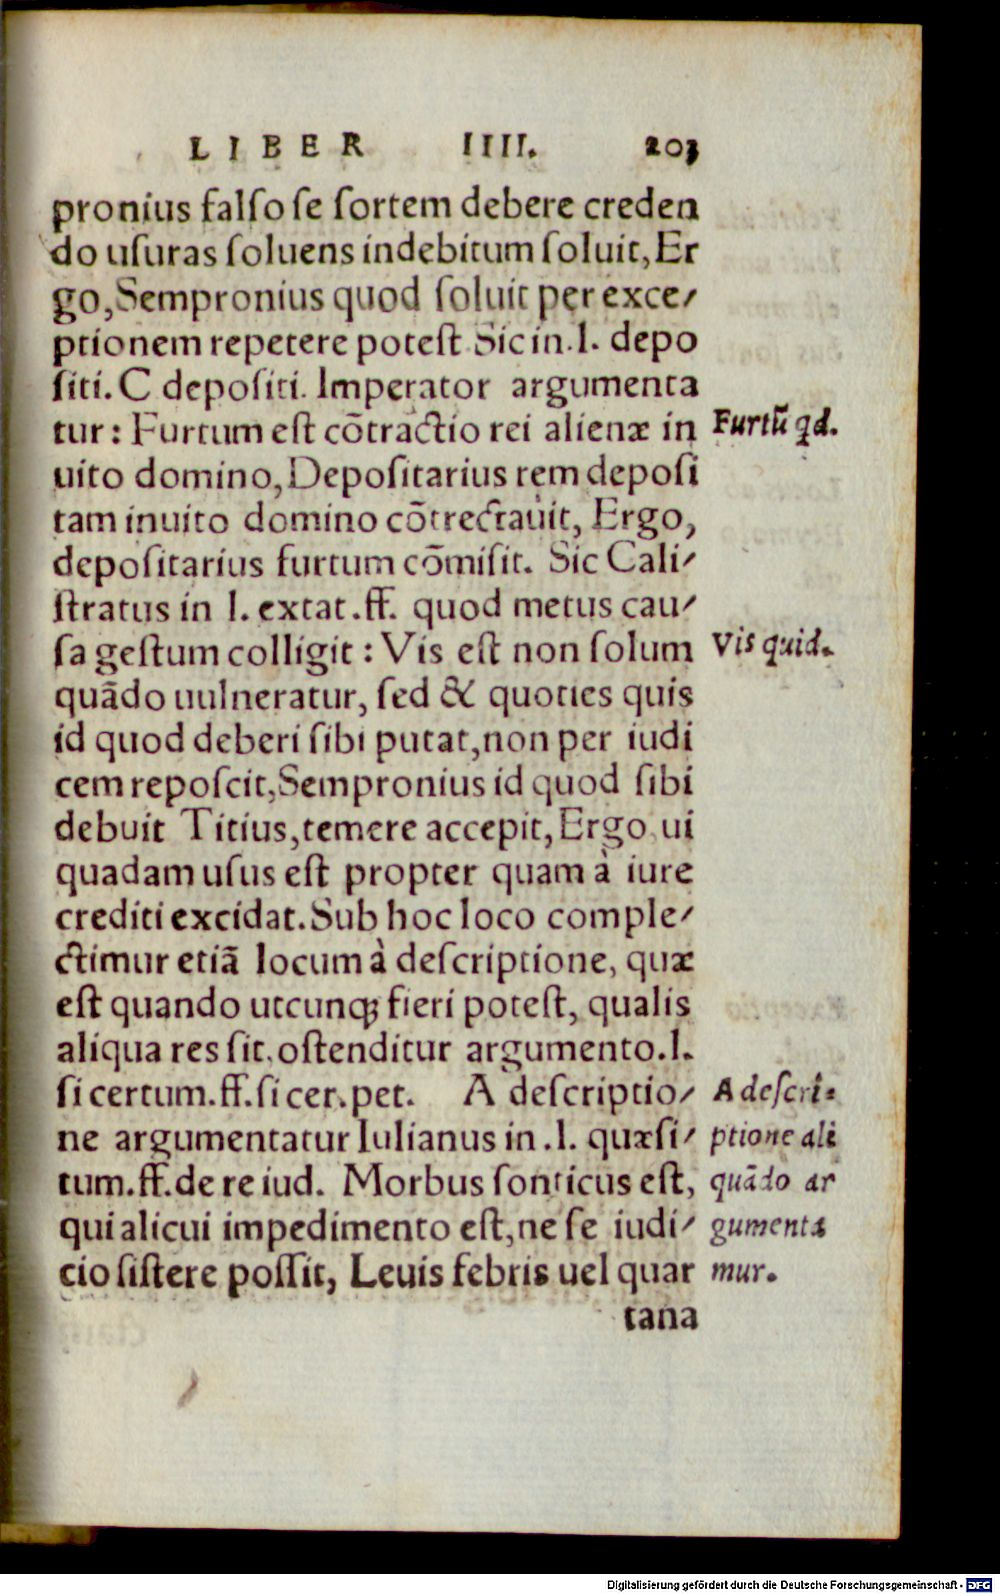 LIBER IIII. 203
pronius falso se sortem debere creden
do usuras soluens indebitum soluit, Er
go, Sempronius quod soluit per exce/
ptionem repetere potest Sic in .l. depo
siti. C depositi. Imperator argumenta
tur: Furtum est cõtractio rei alienæ in
Furtũ qd.
uito domino, Depositarius rem deposi
tam inuito domino cõtrectauit, Ergo,
depositarius furtum cõmisit. Sic Cali/
stratus in l. extat .ff. quod metus cau/
sa gestum colligit: Vis est non solum
Vis quid.
quãdo uulneratur, sed & quoties quis
id quod deberi sibi putat, non per iudi
cem reposcit, Sempronius id quod sibi
debuit Titius, temere accepit, Ergo ui
quadam usus est propter quam à iure
crediti excidat. Sub hoc loco comple/
ctimur etiã locum à descriptione, quæ
est quando utcunq; fieri potest, qualis
aliqua res sit, ostenditur argumento .l.
si certum .ff. si cer. pet. A descriptio/
A descri-
ne argumentatur Iulianus in .l. quæsi/
ptione ali
tum .ff. de re iud. Morbus sonticus est,
quãdo ar
qui alicui impedimento est, ne se iudi/
gumenta
cio sistere possit, Leuis febris uel quar
mur.
tana
Digitalisierung gefördert durch die Deutsche Forschungsgemeinschaft - DFG